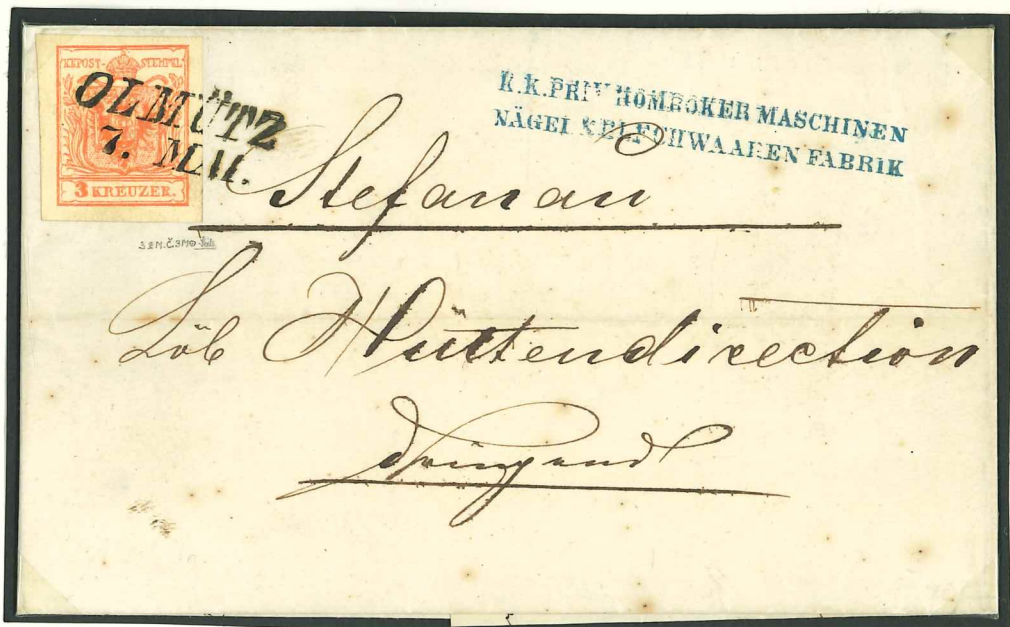 KKPOST-STEMPEL
OLMÜTZ
7. MAI.
3 KREUZER.
K.K.PRIV HOMBOKER MASCHINEN
NÄGEL & BLECHWAAREN FABRIK
Stefanau
Löb Hüttendirection
dringend